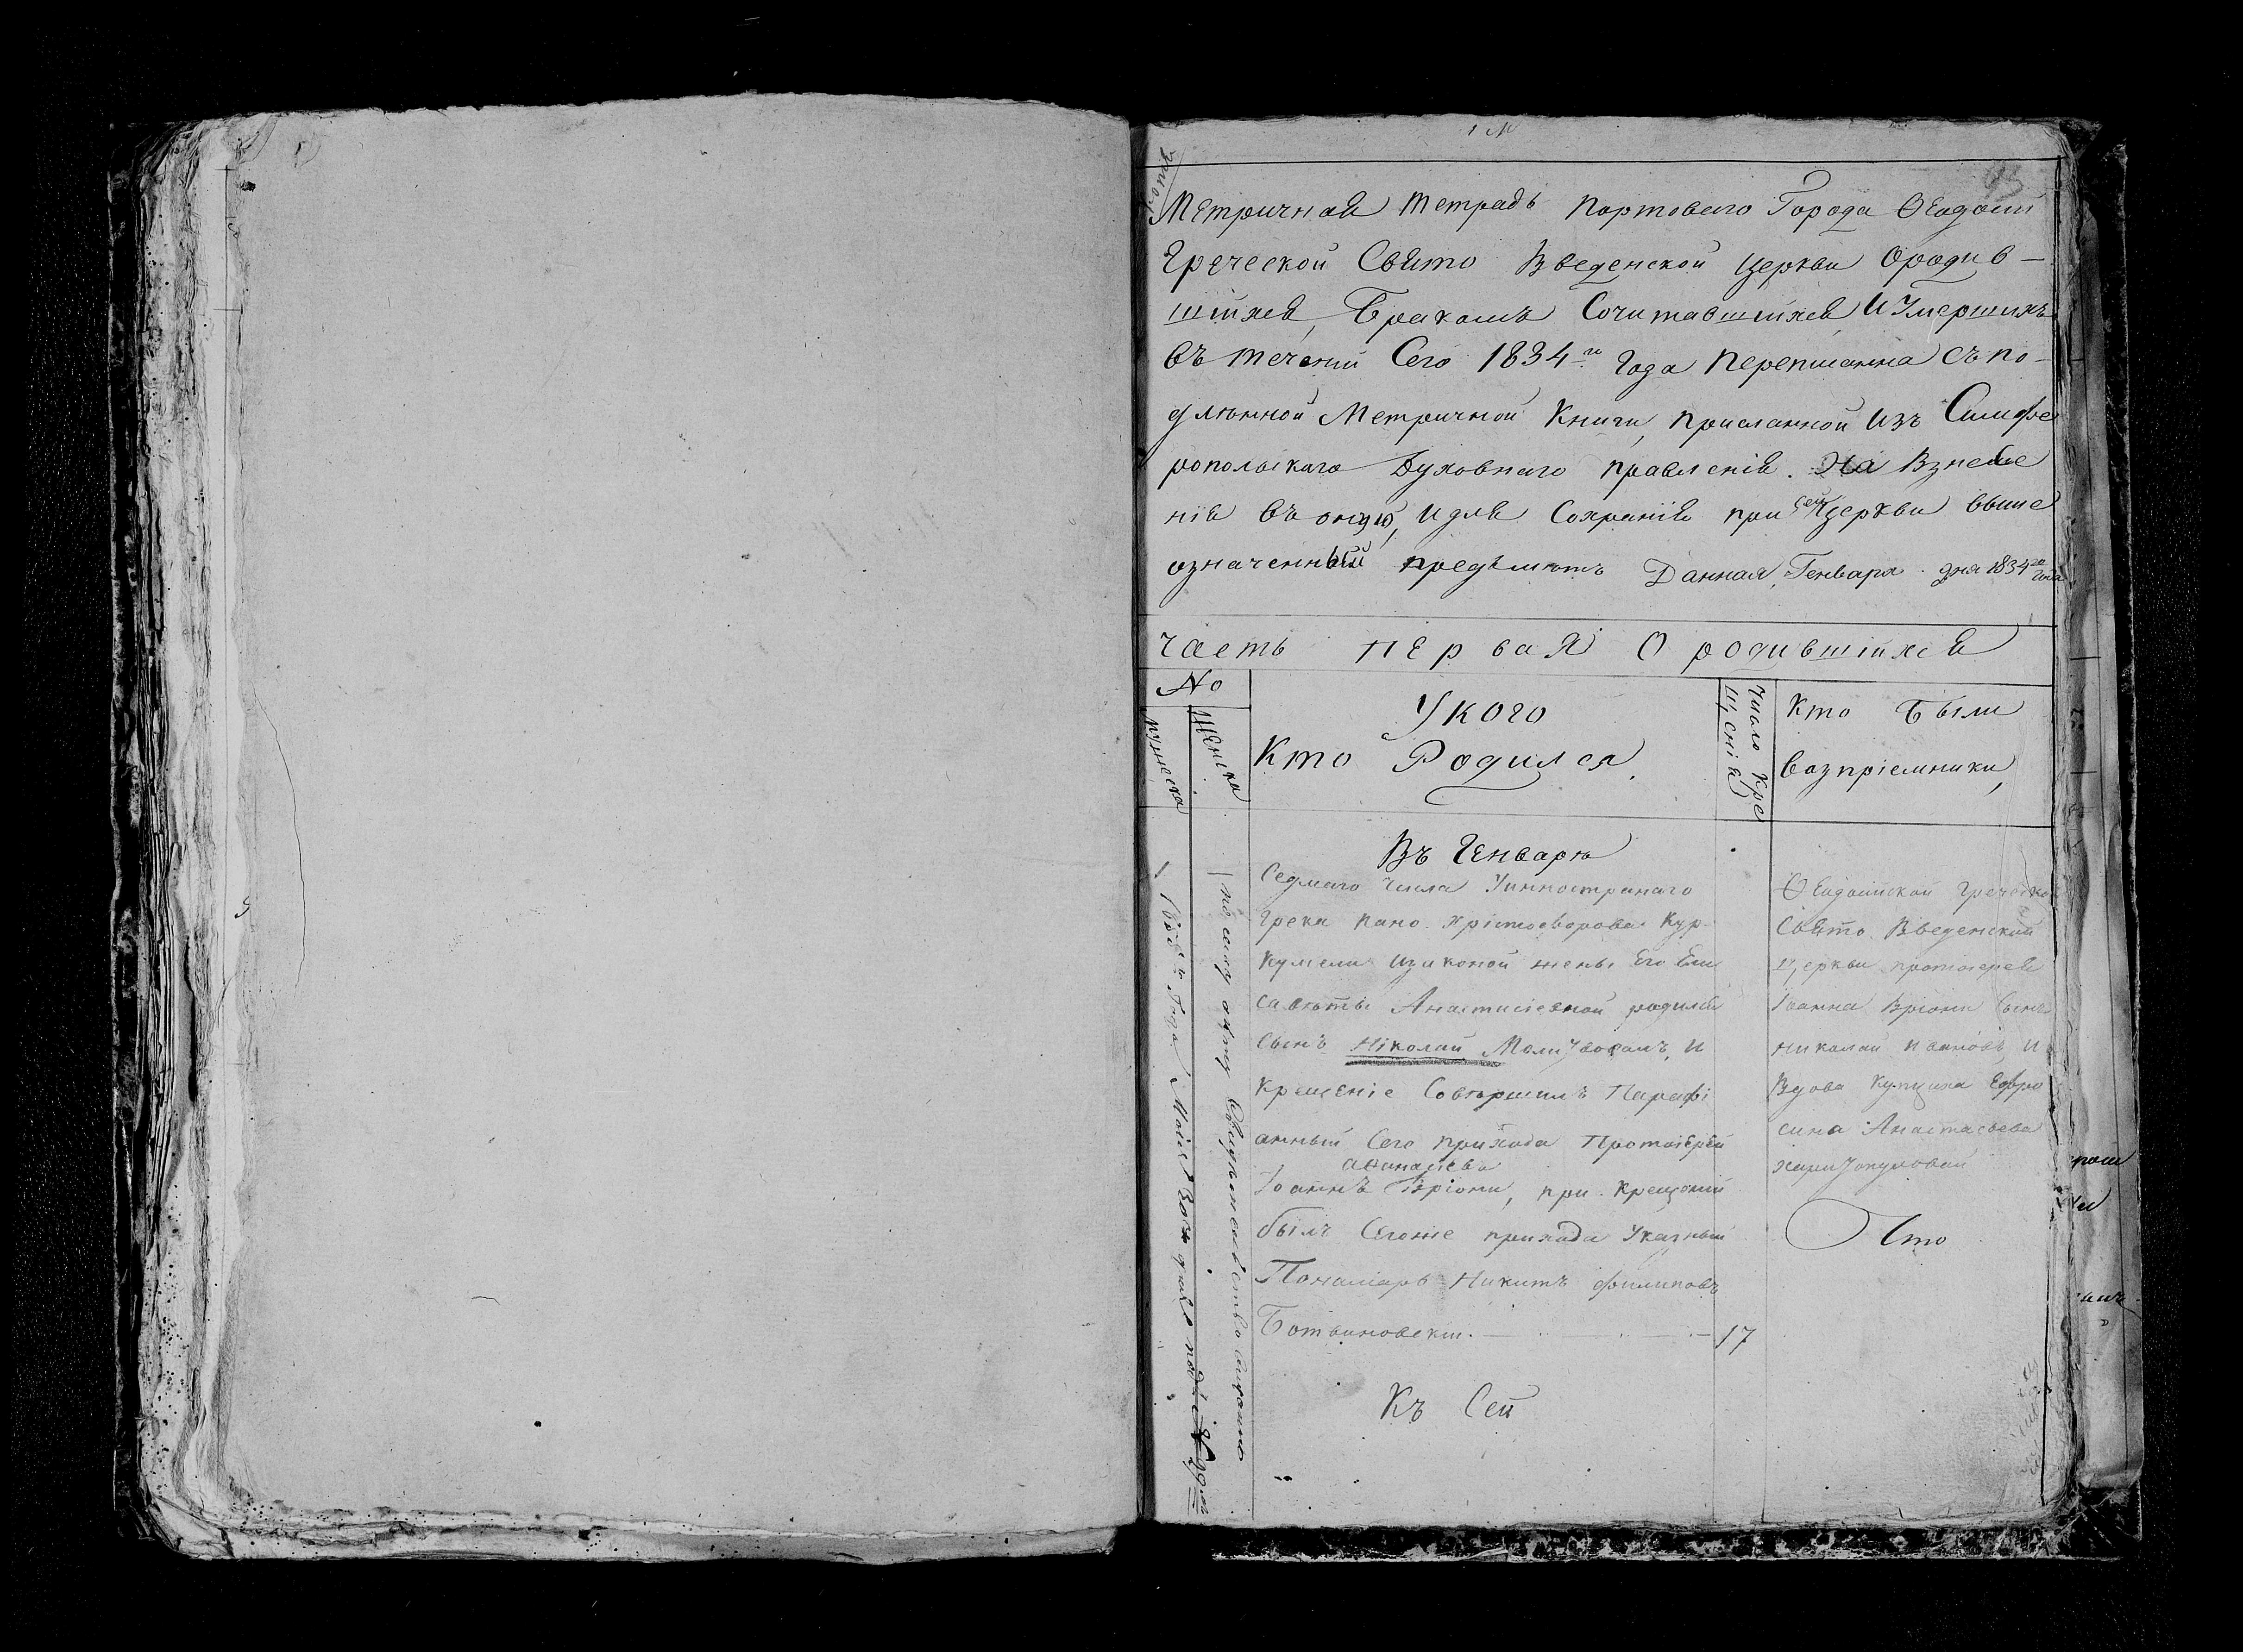 93
Метричная тетрадь Портоваго Города Ѳеодосіи
Греческой Свято Введенской церкви ородив-
шихся, Бракомъ Сочитавшихся, и Умершихъ
въ течении Сего 1834го Года Переписанна съ по-
длинной Метричной Книги, присланной изъ Симфе
ропольскаго Духовнаго правленія. На Взнесе
нія въ оную, и для Сохранія при сей церкви выше
означенный предметъ Данная, Генваря дня 1834го Года
Часть первая О родившихся
No
мужеска
Женска
Укого
Кто Родился
Число Кре
щенія
Кто Были
Возпріемники,
Въ Генварѣ
Седмаго Числа Уинностранаго
Грека Пано Христофорова Кур-
кумели изаконой жены Его Ели
саветы Анастасіевой родился
Сынъ Николай Молитвовалъ, и
Крещеніе Совершилъ Парафі
анный Сего прихода Протоіерей
Аѳанасіевъ
Іоаннъ Вріони, при Крещеніи
былъ Сегоже прихода Указный
Понамарь Никитъ Филиповъ
Ботвиновски. 17
Къ Сей
Ѳеодосійской Греческо
Свято Введенской
церкви протоіерея
Іоанна Вріони Сынъ
Николай Ивановъ, и
Вдова Купчиха Ефро
сина Анастасьева
Сто
1
1835го Года Маія
по сему акту Свидетельство